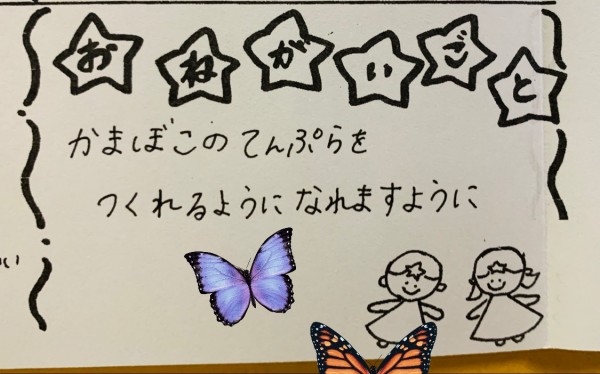 おねがいごと
かまぼこのてんぷらを
つくれるようになれますように
い